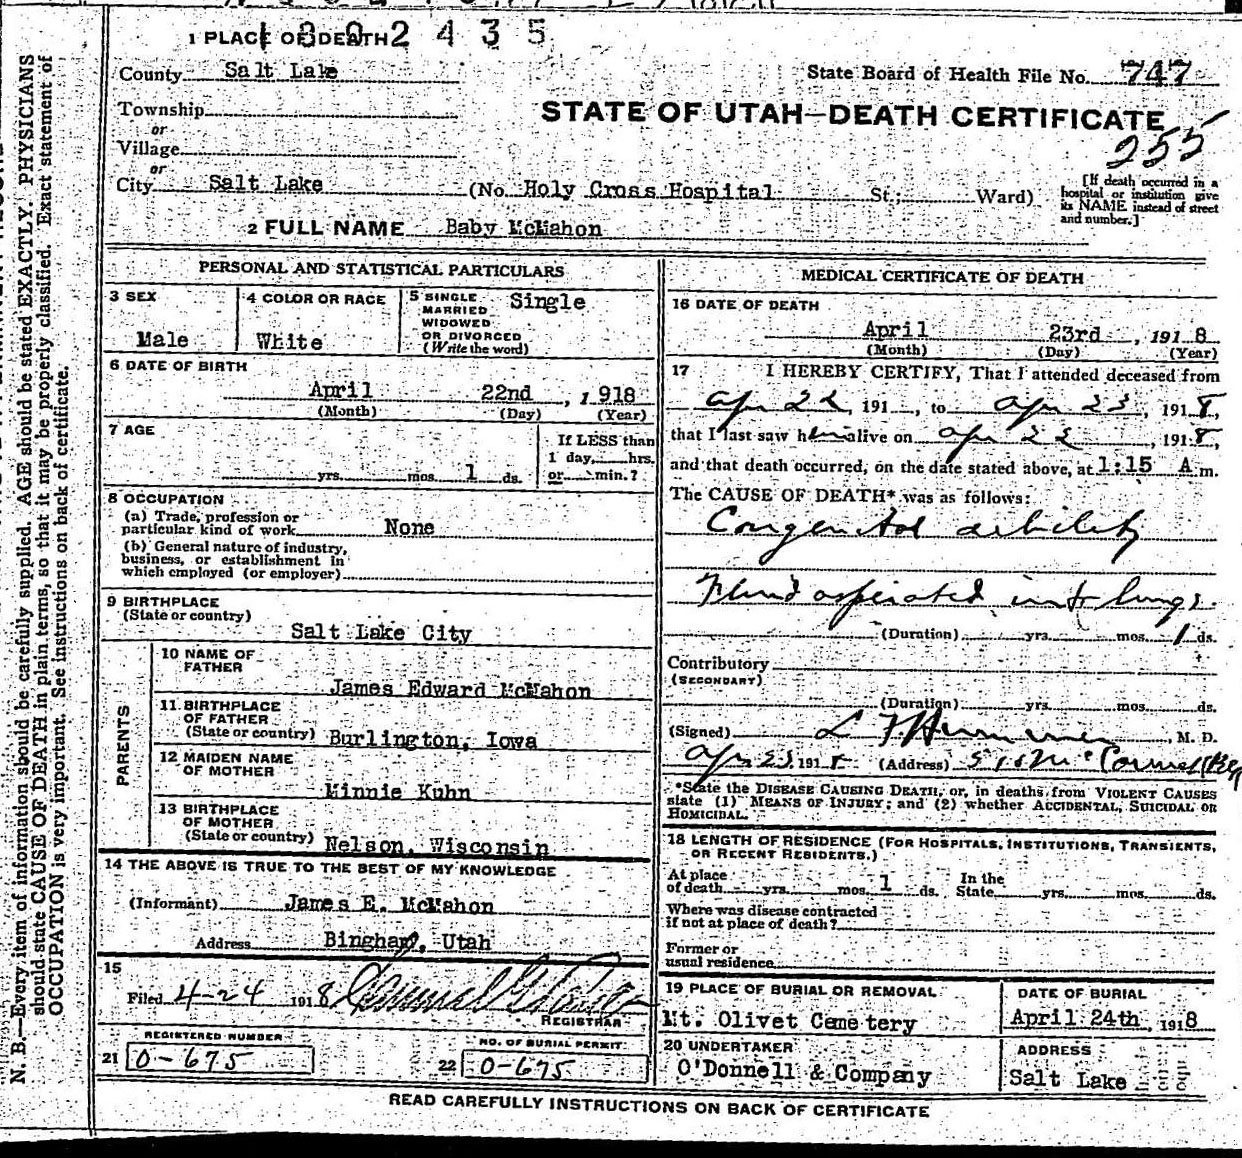 1 PLACE OF DEATH 2 4 3 5
County Salt Lake
State Board of Health File No. 747
Township
or
Village
or
STATE OF UTAH—DEATH CERTIFICATE
255
City Salt Lake (No. Holy Cross Hospital St.; Ward)
[If death occurred in a
hospital or institution give
its NAME instead of street
and number.]
2 FULL NAME Baby McMahon
PERSONAL AND STATISTICAL PARTICULARS
3 SEX
Male
4 COLOR OR RACE
White
5 SINGLE
MARRIED
WIDOWED
OR DIVORCED
(Write the word)
Single
6 DATE OF BIRTH
April 22nd, 1 918
(Month) (Day) (Year)
7 AGE
yrs. mos. 1 ds.
If LESS than
1 day, hrs.
or min.?
8 OCCUPATION
(a) Trade, profession or
particular kind of work None
(b) General nature of industry,
business, or establishment in
which employed (or employer)
9 BIRTHPLACE
(State or country)
Salt Lake City
PARENTS
10 NAME OF
FATHER
James Edward McMahon
11 BIRTHPLACE
OF FATHER
(State or country) Burlington, Iowa
12 MAIDEN NAME
OF MOTHER
Minnie Kuhn
13 BIRTHPLACE
OF MOTHER
(State or country) Nelson, Wisconsin
14 THE ABOVE IS TRUE TO THE BEST OF MY KNOWLEDGE
(Informant) James E. McMahon
Address Bingham, Utah
15
Filed 4-24 1918
REGISTRAR
REGISTERED NUMBER
21 0-675
NO. OF BURIAL PERMIT
22 0-675
MEDICAL CERTIFICATE OF DEATH
16 DATE OF DEATH
April 23rd, 191 8
(Month) (Day) (Year)
17 I HEREBY CERTIFY, That I attended deceased from
Apr 22, 191 , to Apr 23, 1918,
that I last saw him alive on Apr 22, 1918,
and that death occurred, on the date stated above, at 1:15 A m.
The CAUSE OF DEATH* was as follows:
Congenital debility
Fluid aspirated into lungs.
(Duration) yrs. mos. 1 ds.
Contributory
(SECONDARY)
(Duration) yrs. mos. ds.
(Signed) L F , M. D.
Apr 23 1918 (Address)
*State the DISEASE CAUSING DEATH, or, in deaths from VIOLENT CAUSES
state (1) MEANS OF INJURY; and (2) whether ACCIDENTAL, SUICIDAL OR
HOMICIDAL.
18 LENGTH OF RESIDENCE (FOR HOSPITALS, INSTITUTIONS, TRANSIENTS,
OR RECENT RESIDENTS.)
At place
of death yrs. mos. 1 ds.
In the
State yrs. mos. ds.
Where was disease contracted
if not at place of death?
Former or
usual residence
19 PLACE OF BURIAL OR REMOVAL
Mt. Olivet Cemetery
DATE OF BURIAL
April 24th, 1918
20 UNDERTAKER
O'Donnell & Company
ADDRESS
Salt Lake
READ CAREFULLY INSTRUCTIONS ON BACK OF CERTIFICATE
N. B.—Every item of information should be carefully supplied. AGE should be stated EXACTLY. PHYSICIANS
should state CAUSE OF DEATH in plain terms, so that it may be properly classified. Exact statement of
OCCUPATION is very important. See instructions on back of certificate.